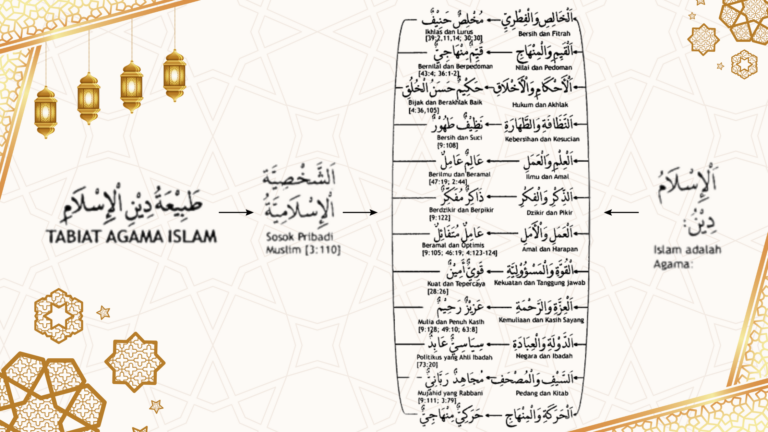 طَبِيْعَةُ دِيْنِ الْإِسْلَامِ
TABIAT AGAMA ISLAM
اَلشَّخْصِيَّةُ
الْإِسْلَامِيَّةُ
Sosok Pribadi
Muslim [3:110]
مُخْلِصٌ حَنِيْفٌ
اَلْخَالِصِ وَالْفِطْرِيِّ
Ikhlas dan Lurus
Bersih dan Fitrah
[39:2,11,14; 30:30]
قَيِّمٌ مِنْهَاجِيٌّ
اَلْقَيِّمِ وَالْمِنْهَاجِ
Bernilai dan Berpedoman
Nilai dan Pedoman
[43:4; 36:1-2]
حَكِيْمٌ حَسَنُ الْخُلُقِ
اَلْأَحْكَامِ وَالْأَخْلَاقِ
Bijak dan Berakhlak Baik
Hukum dan Akhlak
[4:36,105]
نَظِيْفٌ طَهُوْرٌ
اَلنَّظَافَةِ وَالطَّهَارَةِ
Bersih dan Suci
Kebersihan dan Kesucian
[9:108]
عَالِمٌ عَامِلٌ
اَلْعِلْمِ وَالْعَمَلِ
Berilmu dan Beramal
Ilmu dan Amal
[47:19; 2:44]
ذَاكِرٌ مُفَكِّرٌ
اَلذِّكْرِ وَالْفِكْرِ
Berdzikir dan Berpikir
Dzikir dan Pikir
[9:122]
عَامِلٌ مُتَفَائِلٌ
اَلْعَمَلِ وَالْأَمَلِ
Beramal dan Optimis
Amal dan Harapan
[9:105; 46:19; 4:123-124]
قَوِيٌّ أَمِيْنٌ
اَلْقُوَّةِ وَالْمَسْؤُوْلِيَّةِ
Kuat dan Tepercaya
Kekuatan dan Tanggung Jawab
[28:26]
عَزِيْزٌ رَحِيْمٌ
اَلْعِزَّةِ وَالرَّحْمَةِ
Mulia dan Penuh Kasih
Kemuliaan dan Kasih Sayang
[9:128; 49:10; 63:8]
سِيَاسِيٌّ عَابِدٌ
اَلدَّوْلَةِ وَالْعِبَادَةِ
Politikus yang Ahli Ibadah
Negara dan Ibadah
[73:20]
مُجَاهِدٌ رَبَّانِيٌّ
اَلسَّيْفِ وَالْمُصْحَفِ
Mujahid yang Rabbani
Pedang dan Kitab
[9:111; 3:79]
حَرَكِيٌّ مِنْهَاجِيٌّ
اَلْحَرَكَةِ وَالْمِنْهَاجِ
اَلْإِسْلَامُ
دِيْنُ:
Islam adalah
Agama: